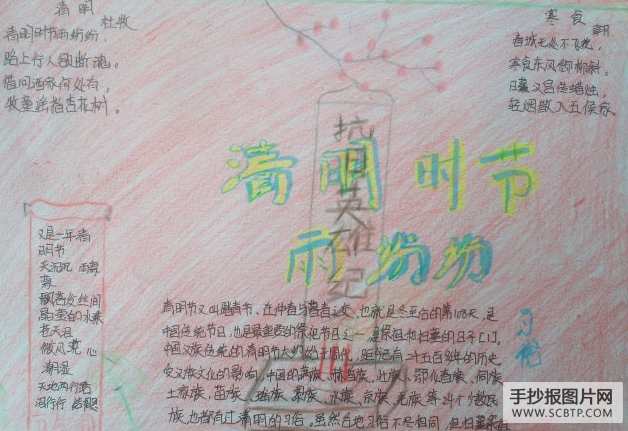 清明
杜牧
清明时节雨纷纷，
路上行人欲断魂。
借问酒家何处有，
牧童遥指杏花树。
寒食
春城无处不飞花，
寒食东风御柳斜。
日暮汉宫传蜡烛，
轻烟散入五侯家。
抗日英雄纪
清明时节
雨纷纷
又是一年清
明节
天沉沉 雨雾
飘落发丝间
晶莹的水珠
苍天泪
微风凉 心
潮湿
天地两行
泪行行
习俗
清明节又叫踏青节，在仲春与暮春之交，也就是冬至后的第108天，是
中国传统节日，也是最重要的祭祀节日之一，是祭祖和扫墓的日子[1]。
中国汉族传统的清明节大约始于周代，距今已有二千五百多年的历史。
受汉族文化的影响，中国的满族、赫哲族、壮族、鄂伦春族、侗族、
土家族、苗族、瑶族、黎族、水族、京族、羌族等24个少数民
族，也都有过清明的习俗。虽然各地习俗不尽相同，但扫墓祭祖
手抄报图片网
WWW.SCBTP.COM